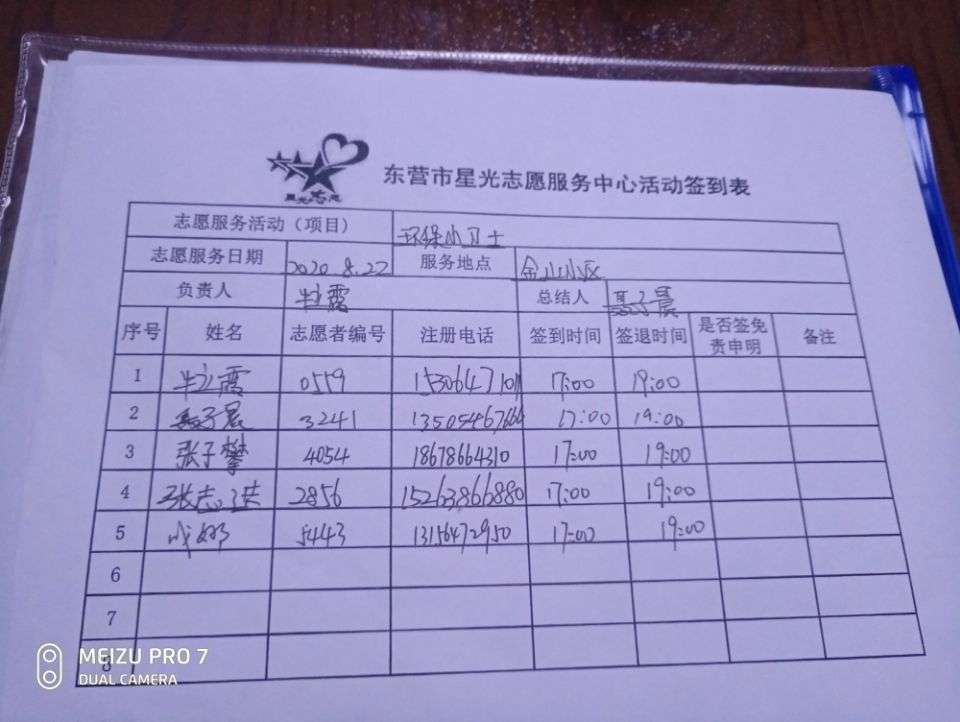 星光志愿
东营市星光志愿服务中心活动签到表
志愿服务活动（项目） 环保小卫士
志愿服务日期 2020 8.22 服务地点 金山小区
负责人 牛立霞 总结人 子晨
序号 姓名 志愿者编号 注册电话 签到时间 签退时间 是否签免责申明 备注
1 牛立霞 0559 15306471011 17:00 19:00
2 子晨 3241 13505467666 17:00 19:00
3 张子攀 4054 18678664310 17:00 19:00
4 张志洪 2856 15263866880 17:00 19:00
5 成娜 5443 13156472950 17:00 19:00
6
7
8
MEIZU PRO 7
DUAL CAMERA